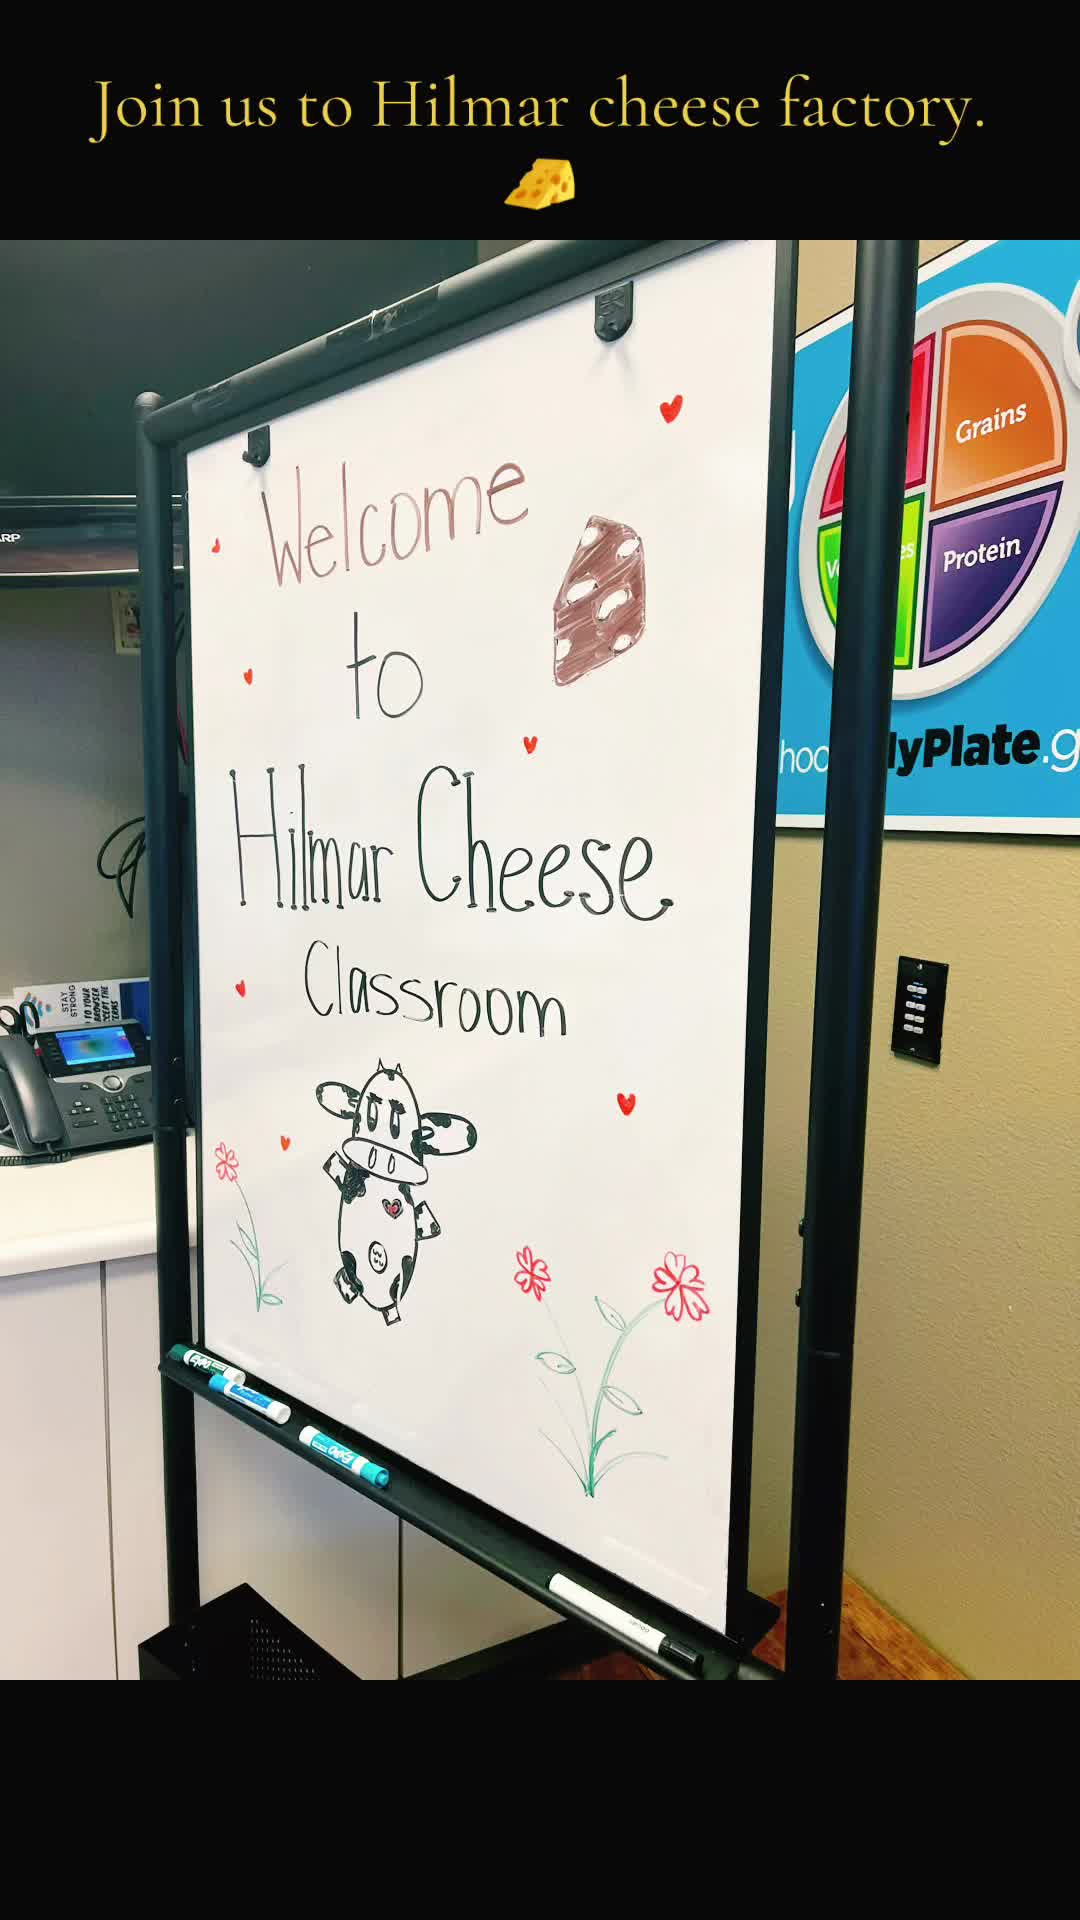 Join us to Hilmar cheese factory.
Welcome
to
Hilmar Cheese
Classroom
Grains
Protein
MyPlate.g
STAY
STRONG
TO YOUR
BROWSER
EXPO
EXPO